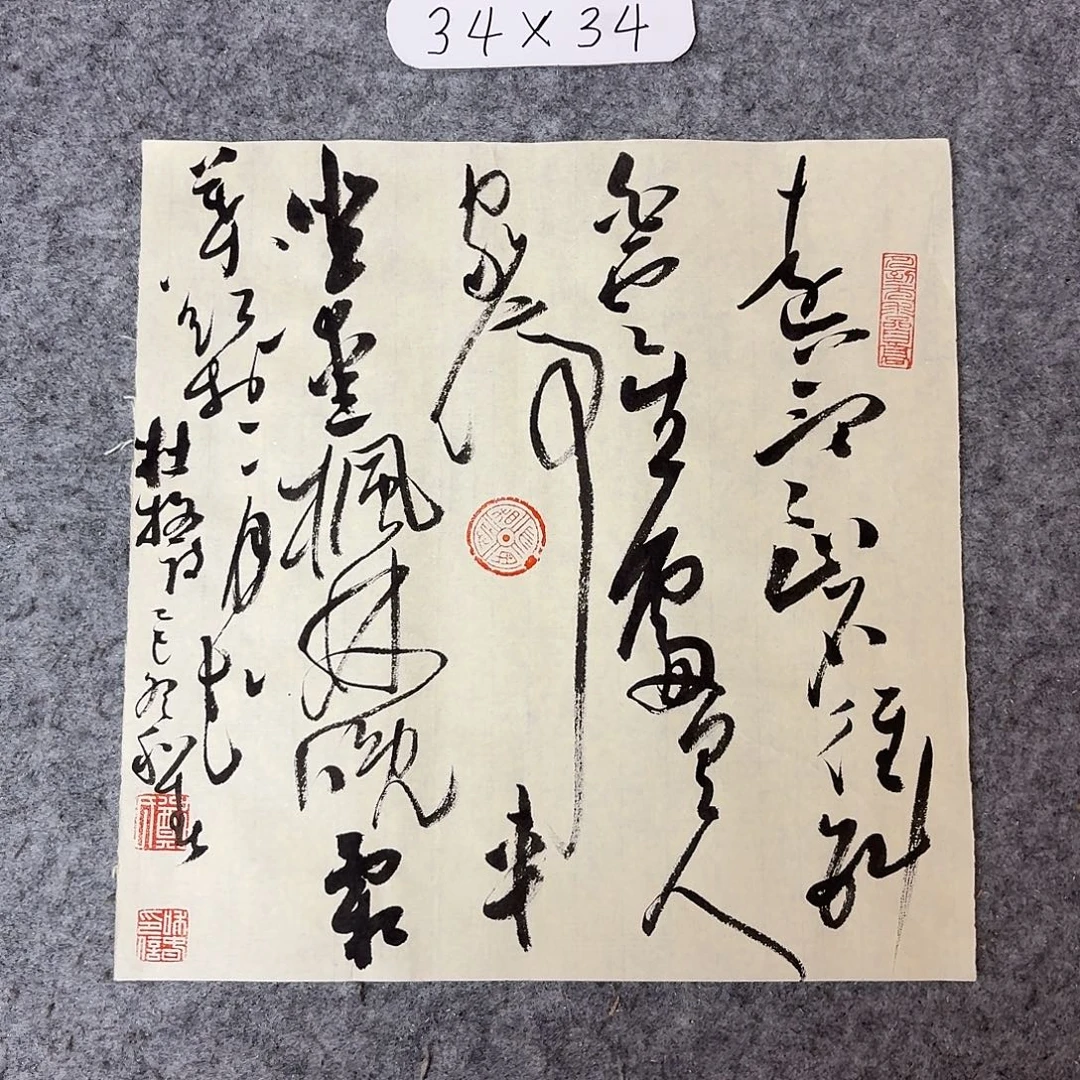 34×34
遠上寒山石徑斜
白雲生處有人
家停車
坐愛楓林晚霜
葉紅於二月花
杜牧詩乙巳冬